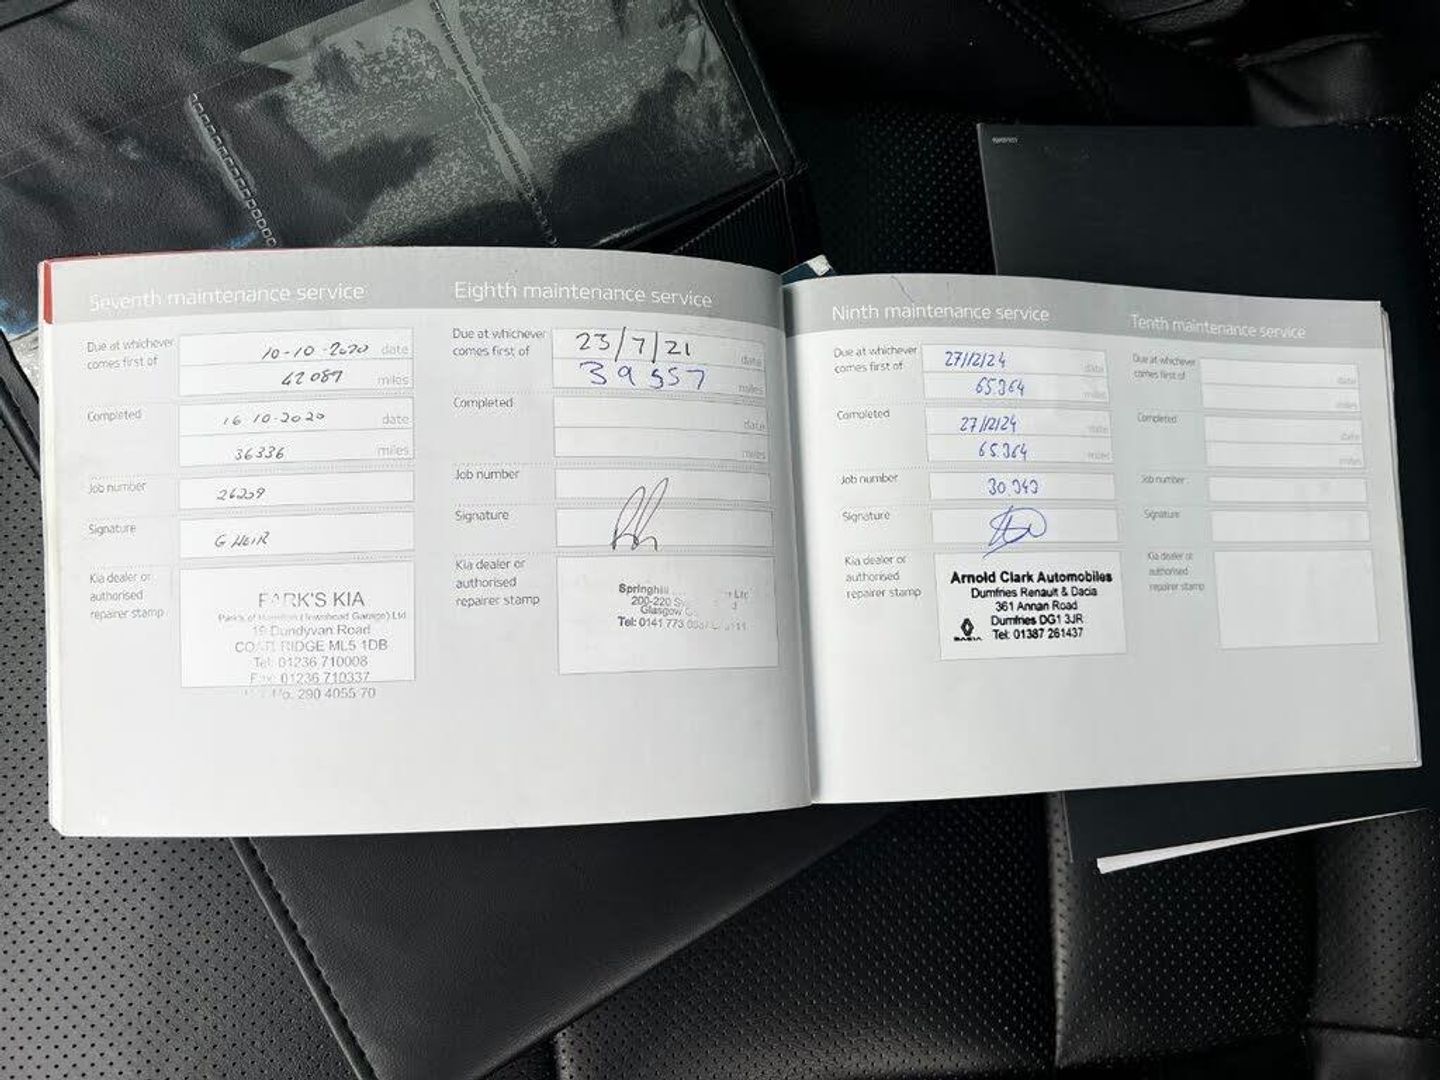 Seventh maintenance service
Due at whichever comes first of
10-10-2020 date
42089 miles
Completed
16 10-2020 date
36336 miles
Job number
26209
Signature
Kia dealer or authorised repairer stamp
PARK'S KIA
Park's of Hamilton (Townhead Garage) Ltd
19 Dundyvan Road
COATBRIDGE ML5 1DB
Tel: 01236 710008
Fax: 01236 710337
No. 290 4055 70
Eighth maintenance service
Due at whichever comes first of
23/7/21 date
39557 miles
Completed
date
miles
Job number
Signature
Kia dealer or authorised repairer stamp
Springhill Ltd
200-220
Glasgow
Tel: 0141 773
Ninth maintenance service
Due at whichever comes first of
27/12/24 date
65.364 miles
Completed
27/12/24 date
65.364 miles
Job number
30.343
Signature
Kia dealer or authorised repairer stamp
Arnold Clark Automobiles
Dumfries Renault & Dacia
361 Annan Road
Dumfries DG1 3JR
Tel: 01387 261437
DACIA
Tenth maintenance service
Due at whichever comes first of
date
miles
Completed
date
miles
Job number
Signature
Kia dealer or authorised repairer stamp